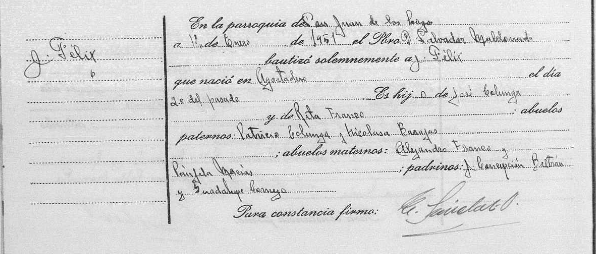 J. Félix
En la parroquia de San Juan de los Lagos
a 1º de Enero de 1951 el Pbro. D. Salvador Maldonado
bautizó solemnemente a J. Félix
que nació en Agostadero el día
20 del pasado Es hijo de José Celunga
y de Rita Franco ; abuelos
paternos: Patricio Celunga y Nicolasa Barajas
; abuelos maternos: Alejandro Franco y
Macías ; padrinos: J. Concepción Beltrán
y Guadalupe Cornejo
Para constancia firmo: